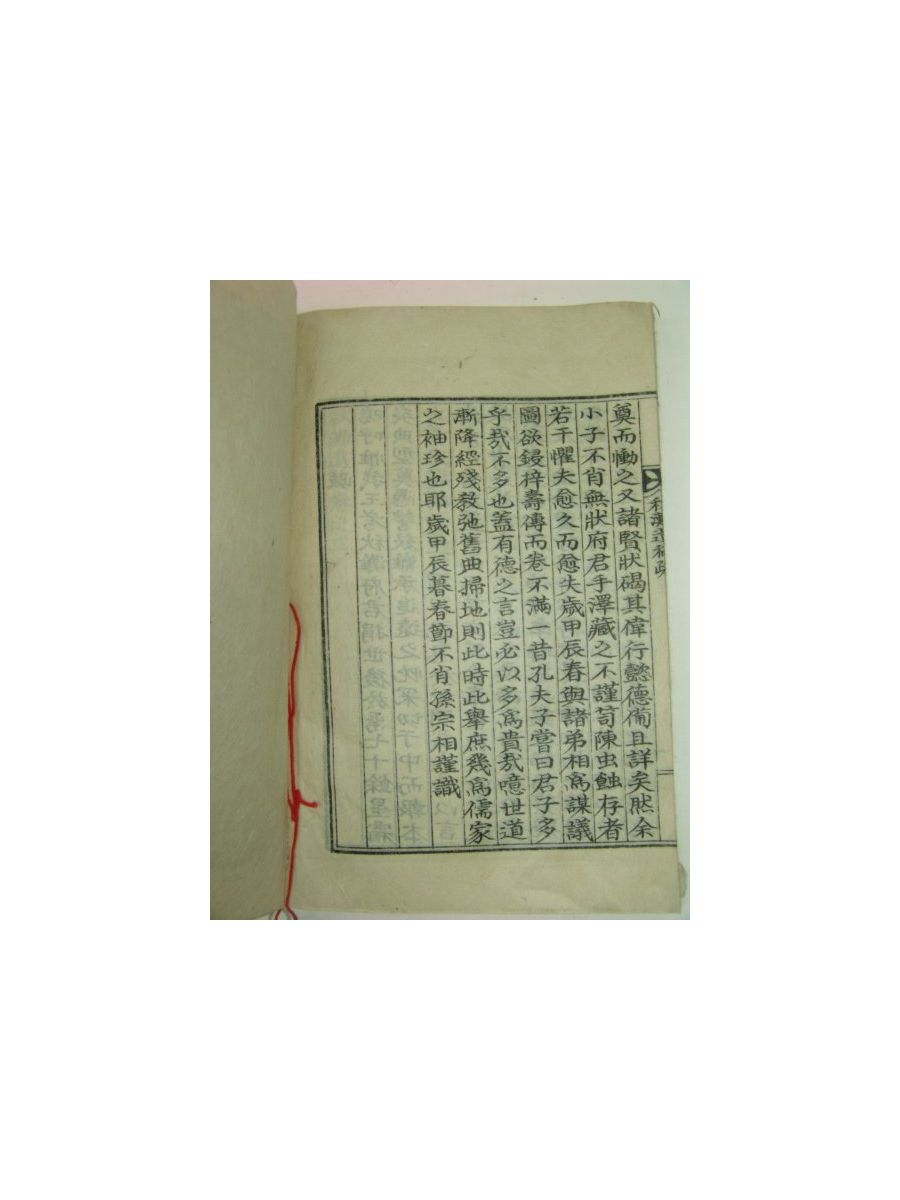 奠而慟之又諸賢狀碣其偉行懿德備且詳矣然余
小子不肖無狀府君手澤藏之不謹笥陳虫蝕存者
若干懼夫愈久而愈失歲甲辰春與諸弟相爲謀議
圖欲鋟梓壽傳而卷不滿一昔孔夫子嘗曰君子多
乎哉不多也蓋有德之言豈必以多爲貴哉噫世道
漸降經殘敎弛舊典掃地則此時此擧庶幾爲儒家
之袖珍也耶歲甲辰暮春節不肖孫宗相謹識